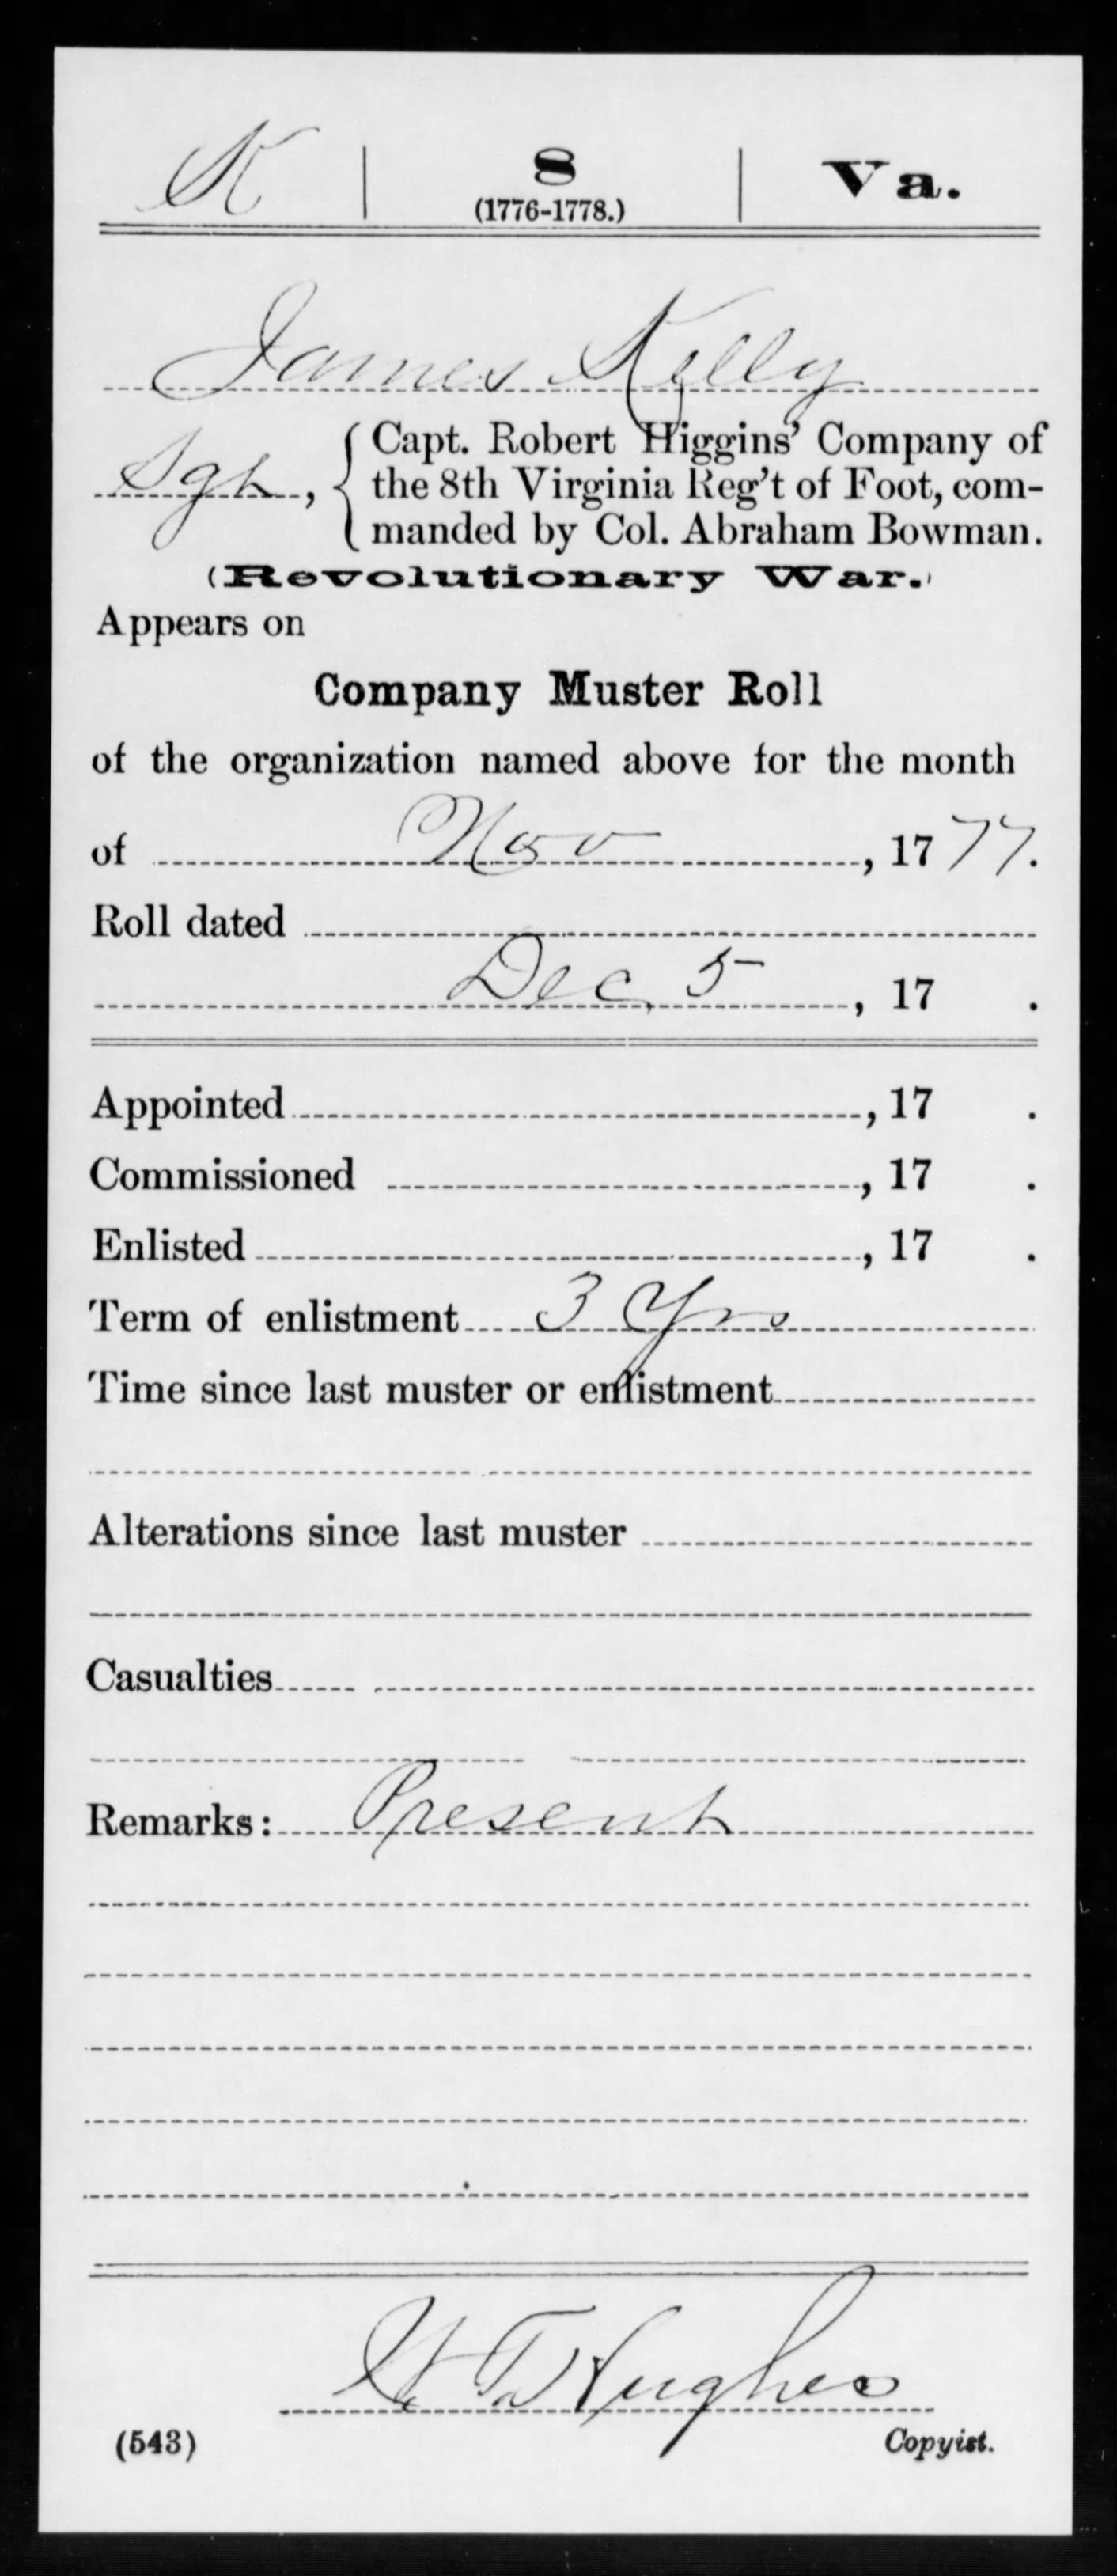 K | 8 | Va.
(1776-1778.)
James Kelly
Sgt, { Capt. Robert Higgins' Company of
the 8th Virginia Reg't of Foot, com-
manded by Col. Abraham Bowman.
(Revolutionary War.)
Appears on
Company Muster Roll
of the organization named above for the month
of Nov, 1777.
Roll dated
Dec. 5, 17 .
Appointed, 17 .
Commissioned, 17 .
Enlisted, 17 .
Term of enlistment 3 Yrs
Time since last muster or enlistment
Alterations since last muster
Casualties
Remarks: Present
Hughes
(543) Copyist.